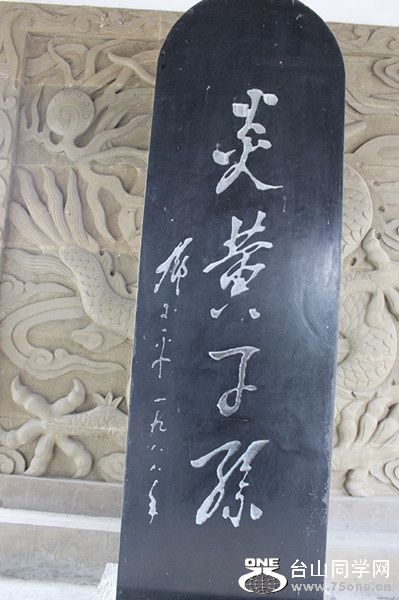 炎黄子孫
一九八八年
ONE
台山同学网
www.75one.cn